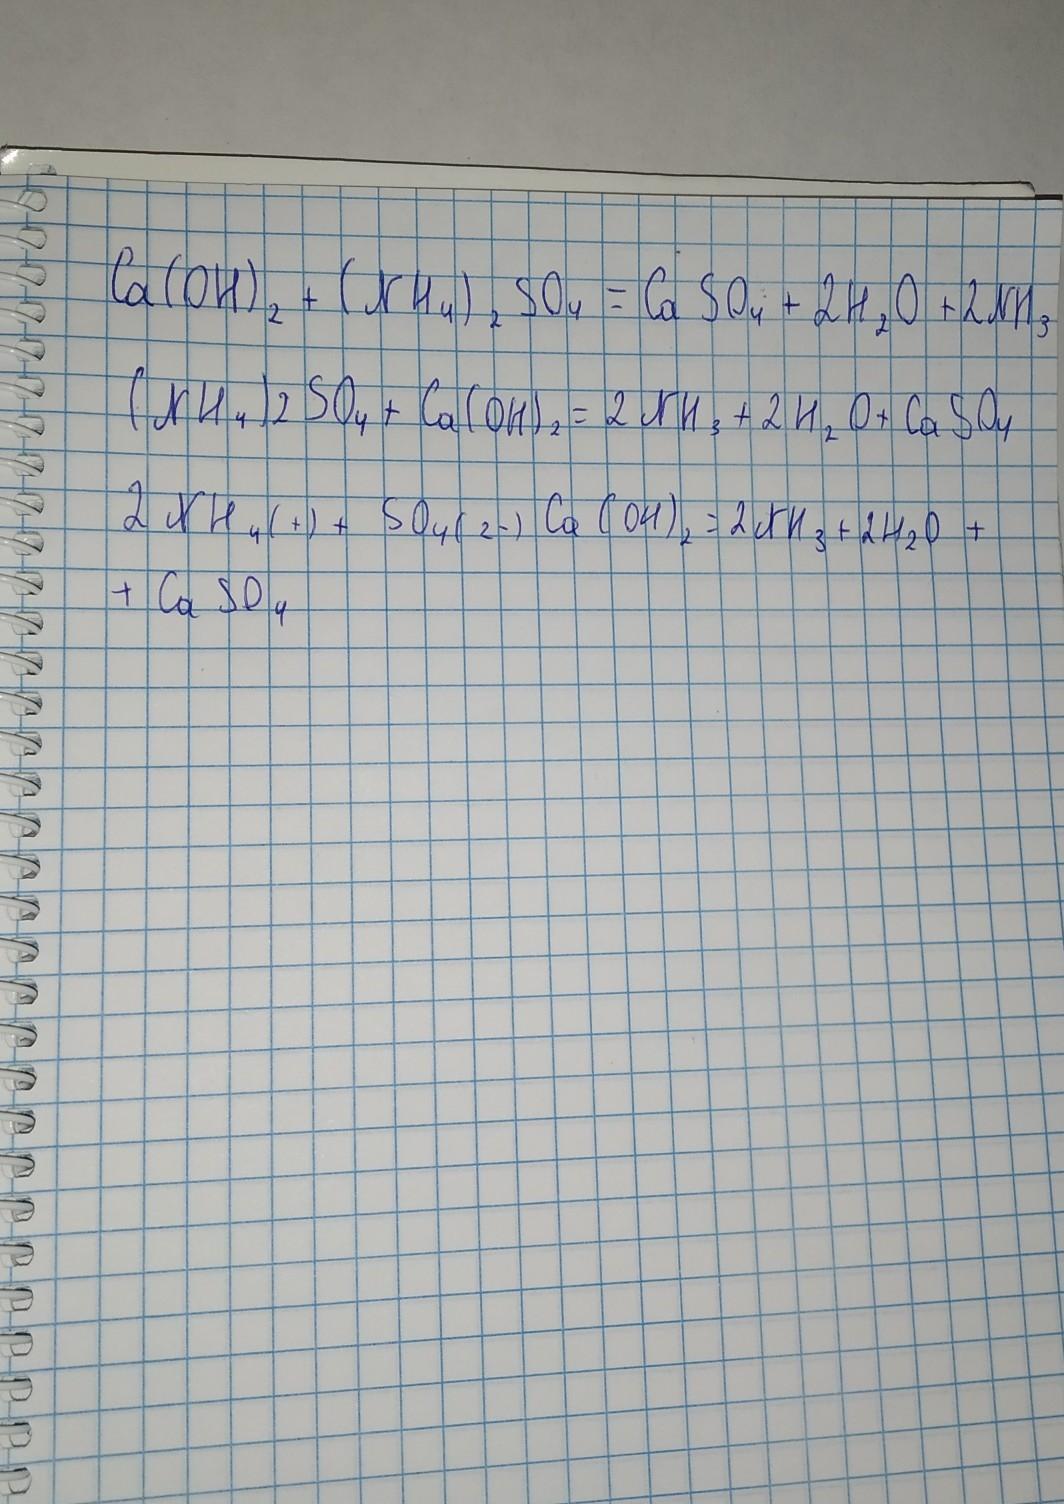 Ca(OH)₂ + (NH₄)₂SO₄ = CaSO₄ + 2H₂O + 2NH₃
(NH₄)2SO₄ + Ca(OH)₂ = 2NH₃ + 2H₂O + CaSO₄
2NH₄(+) + SO₄(2-) Ca(OH)₂ = 2NH₃ + 2H₂O +
+ CaSO₄